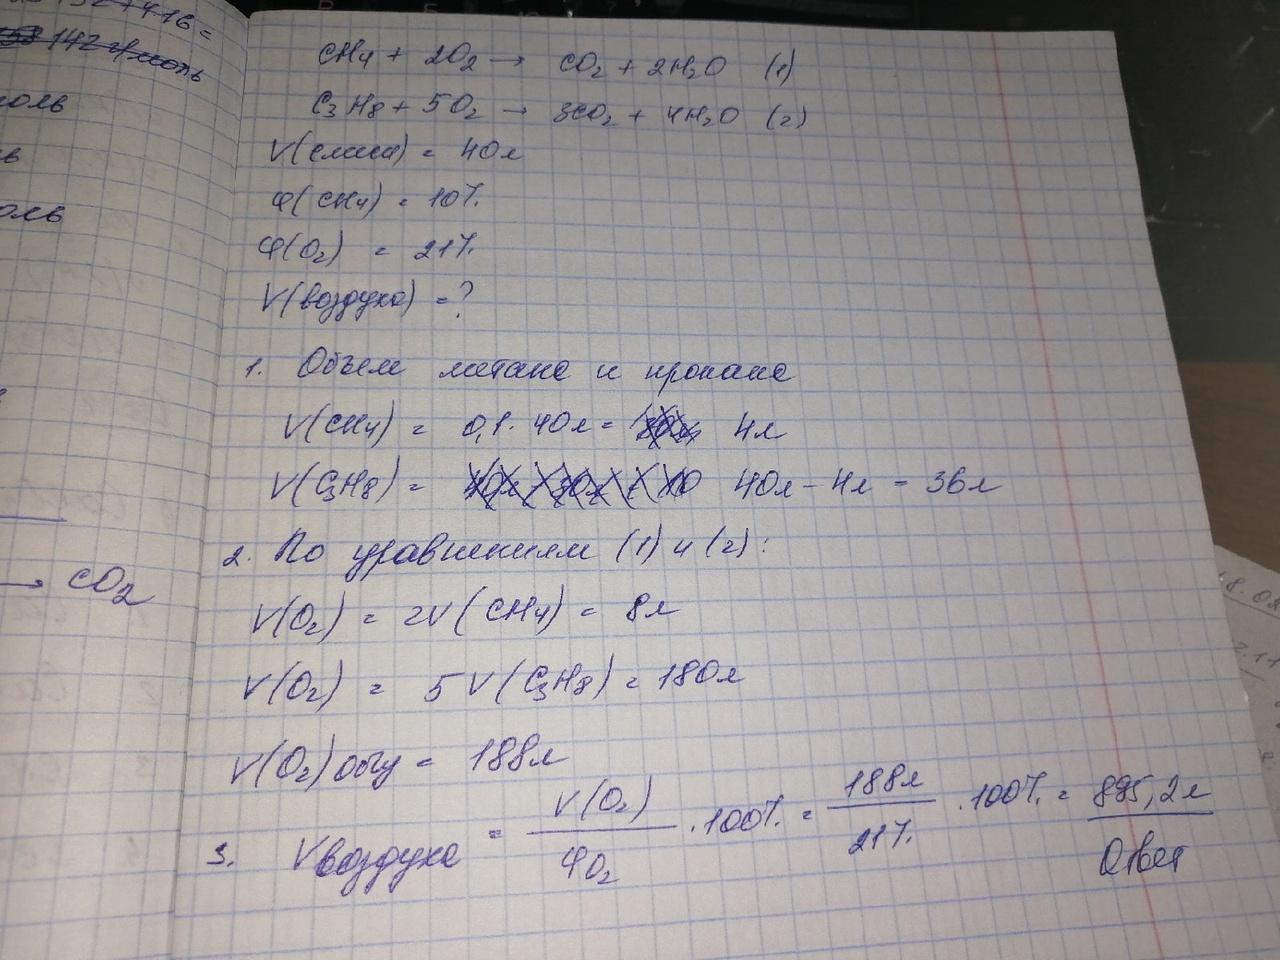 142 г/моль
моль
CO2
CH4 + 2O2 → CO2 + 2H2O (1)
C3H8 + 5O2 → 3CO2 + 4H2O (2)
V(смеси) = 40л
φ(CH4) = 10%
φ(O2) = 21%
V(воздуха) = ?
1. Объем метана и пропана
V(CH4) = 0,1 · 40л = 4л
V(C3H8) = 40л – 4л = 36л
2. По уравнениям (1) и (2):
V(O2) = 2V(CH4) = 8л
V(O2) = 5V(C3H8) = 180л
V(O2)общ = 188л
3. Vвоздуха = V(O2) / φO2 · 100% = 188л / 21% · 100% = 895,2л
Ответ